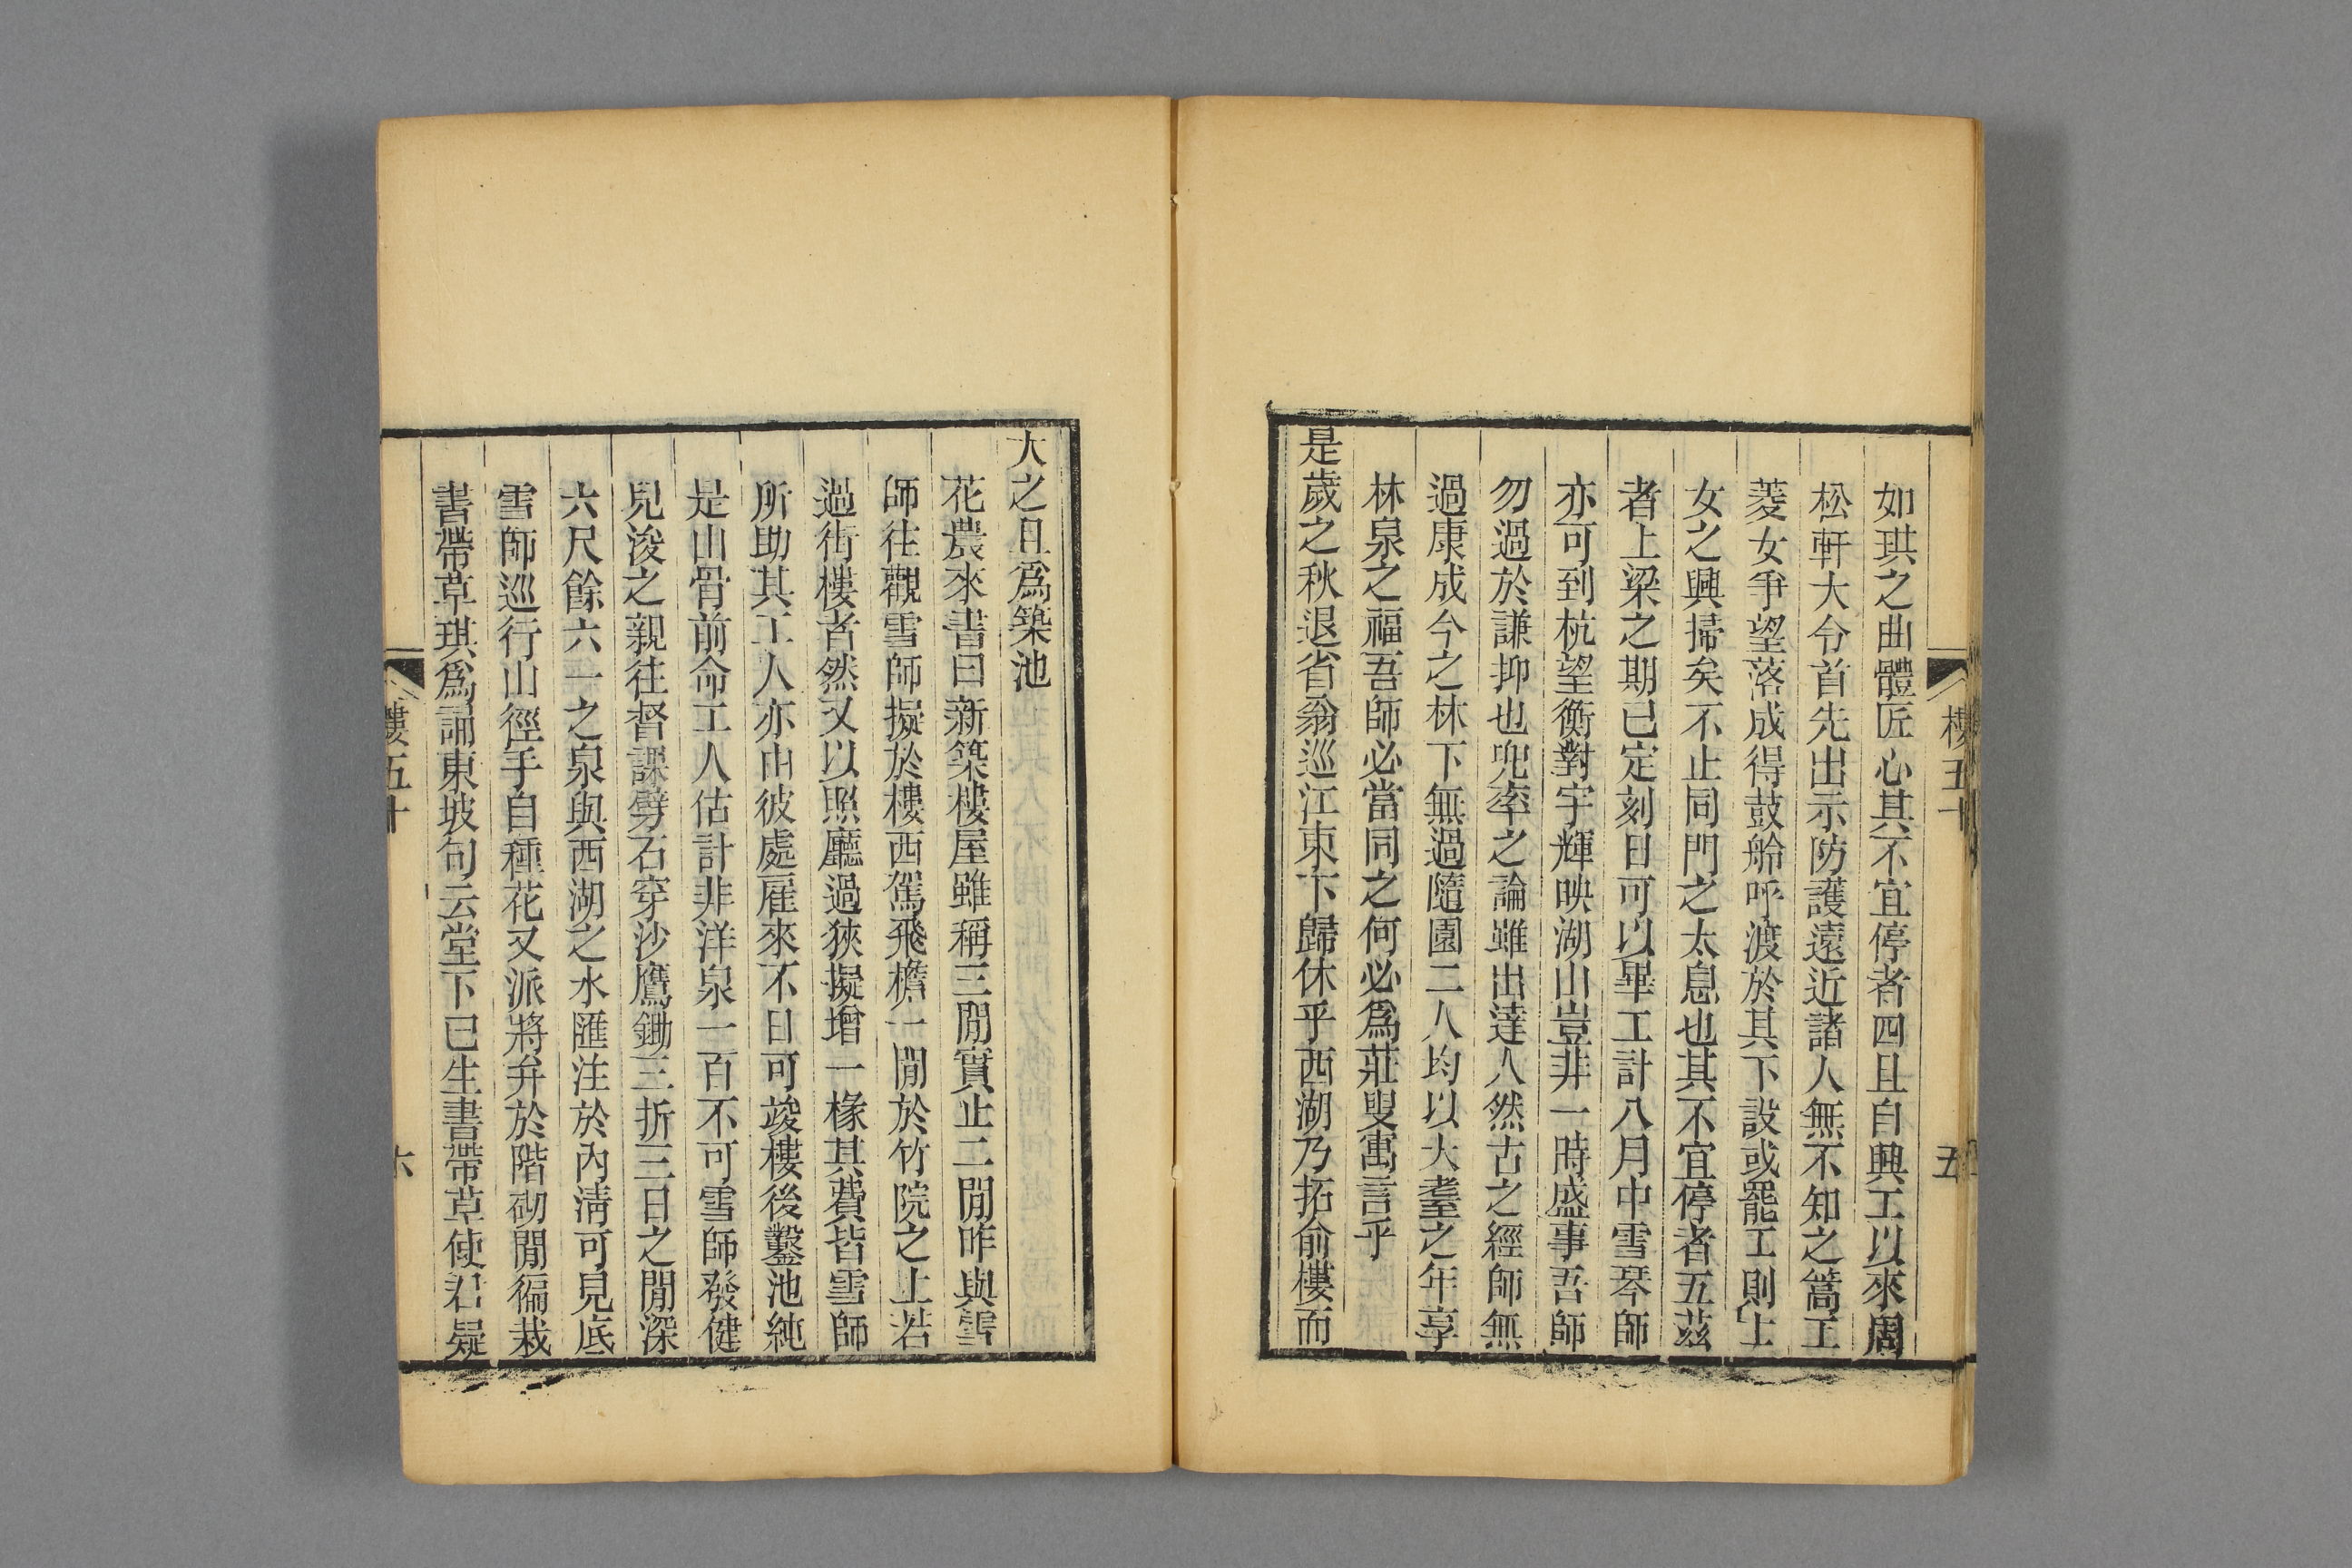 如琪之曲體匠心其不宜停者四且自興工以來周
松軒大令首先出示防護遠近諸人無不知之篙工
菱女爭望落成得鼓舲呼渡於其下設或罷工則上
女之興掃矣不止同門之太息也其不宜停者五茲
者上梁之期已定刻日可以畢工計八月中雪琴師
亦可到杭望衡對宇輝映湖山豈非一時盛事吾師
勿過於謙抑也兜率之論雖出達人然古之經師無
過康成今之林下無過隨園二人均以大耋之年享
林泉之福吾師必當同之何必爲莊叟寓言乎
是歲之秋退省翁巡江東下歸休乎西湖乃拓俞樓而
樓五十
五
大之且爲築池
花農來書曰新築樓屋雖稱三閒實止二閒昨與雪
師往觀雪師擬於樓西駕飛檐一閒於竹院之上若
過街樓者然又以照廳過狹擬增一椽其費皆雪師
所助其工人亦由彼處雇來不日可竣樓後鑿池純
是山骨前命工人估計非洋泉一百不可雪師發健
兒浚之親往督課劈石穿沙鷹鋤三折三日之閒深
六尺餘六一之泉與西湖之水匯注於內淸可見底
雪師巡行山徑手自種花又派將弁於階砌閒徧栽
書帶草琪爲誦東坡句云堂下已生書帶草使君疑
樓五十
六